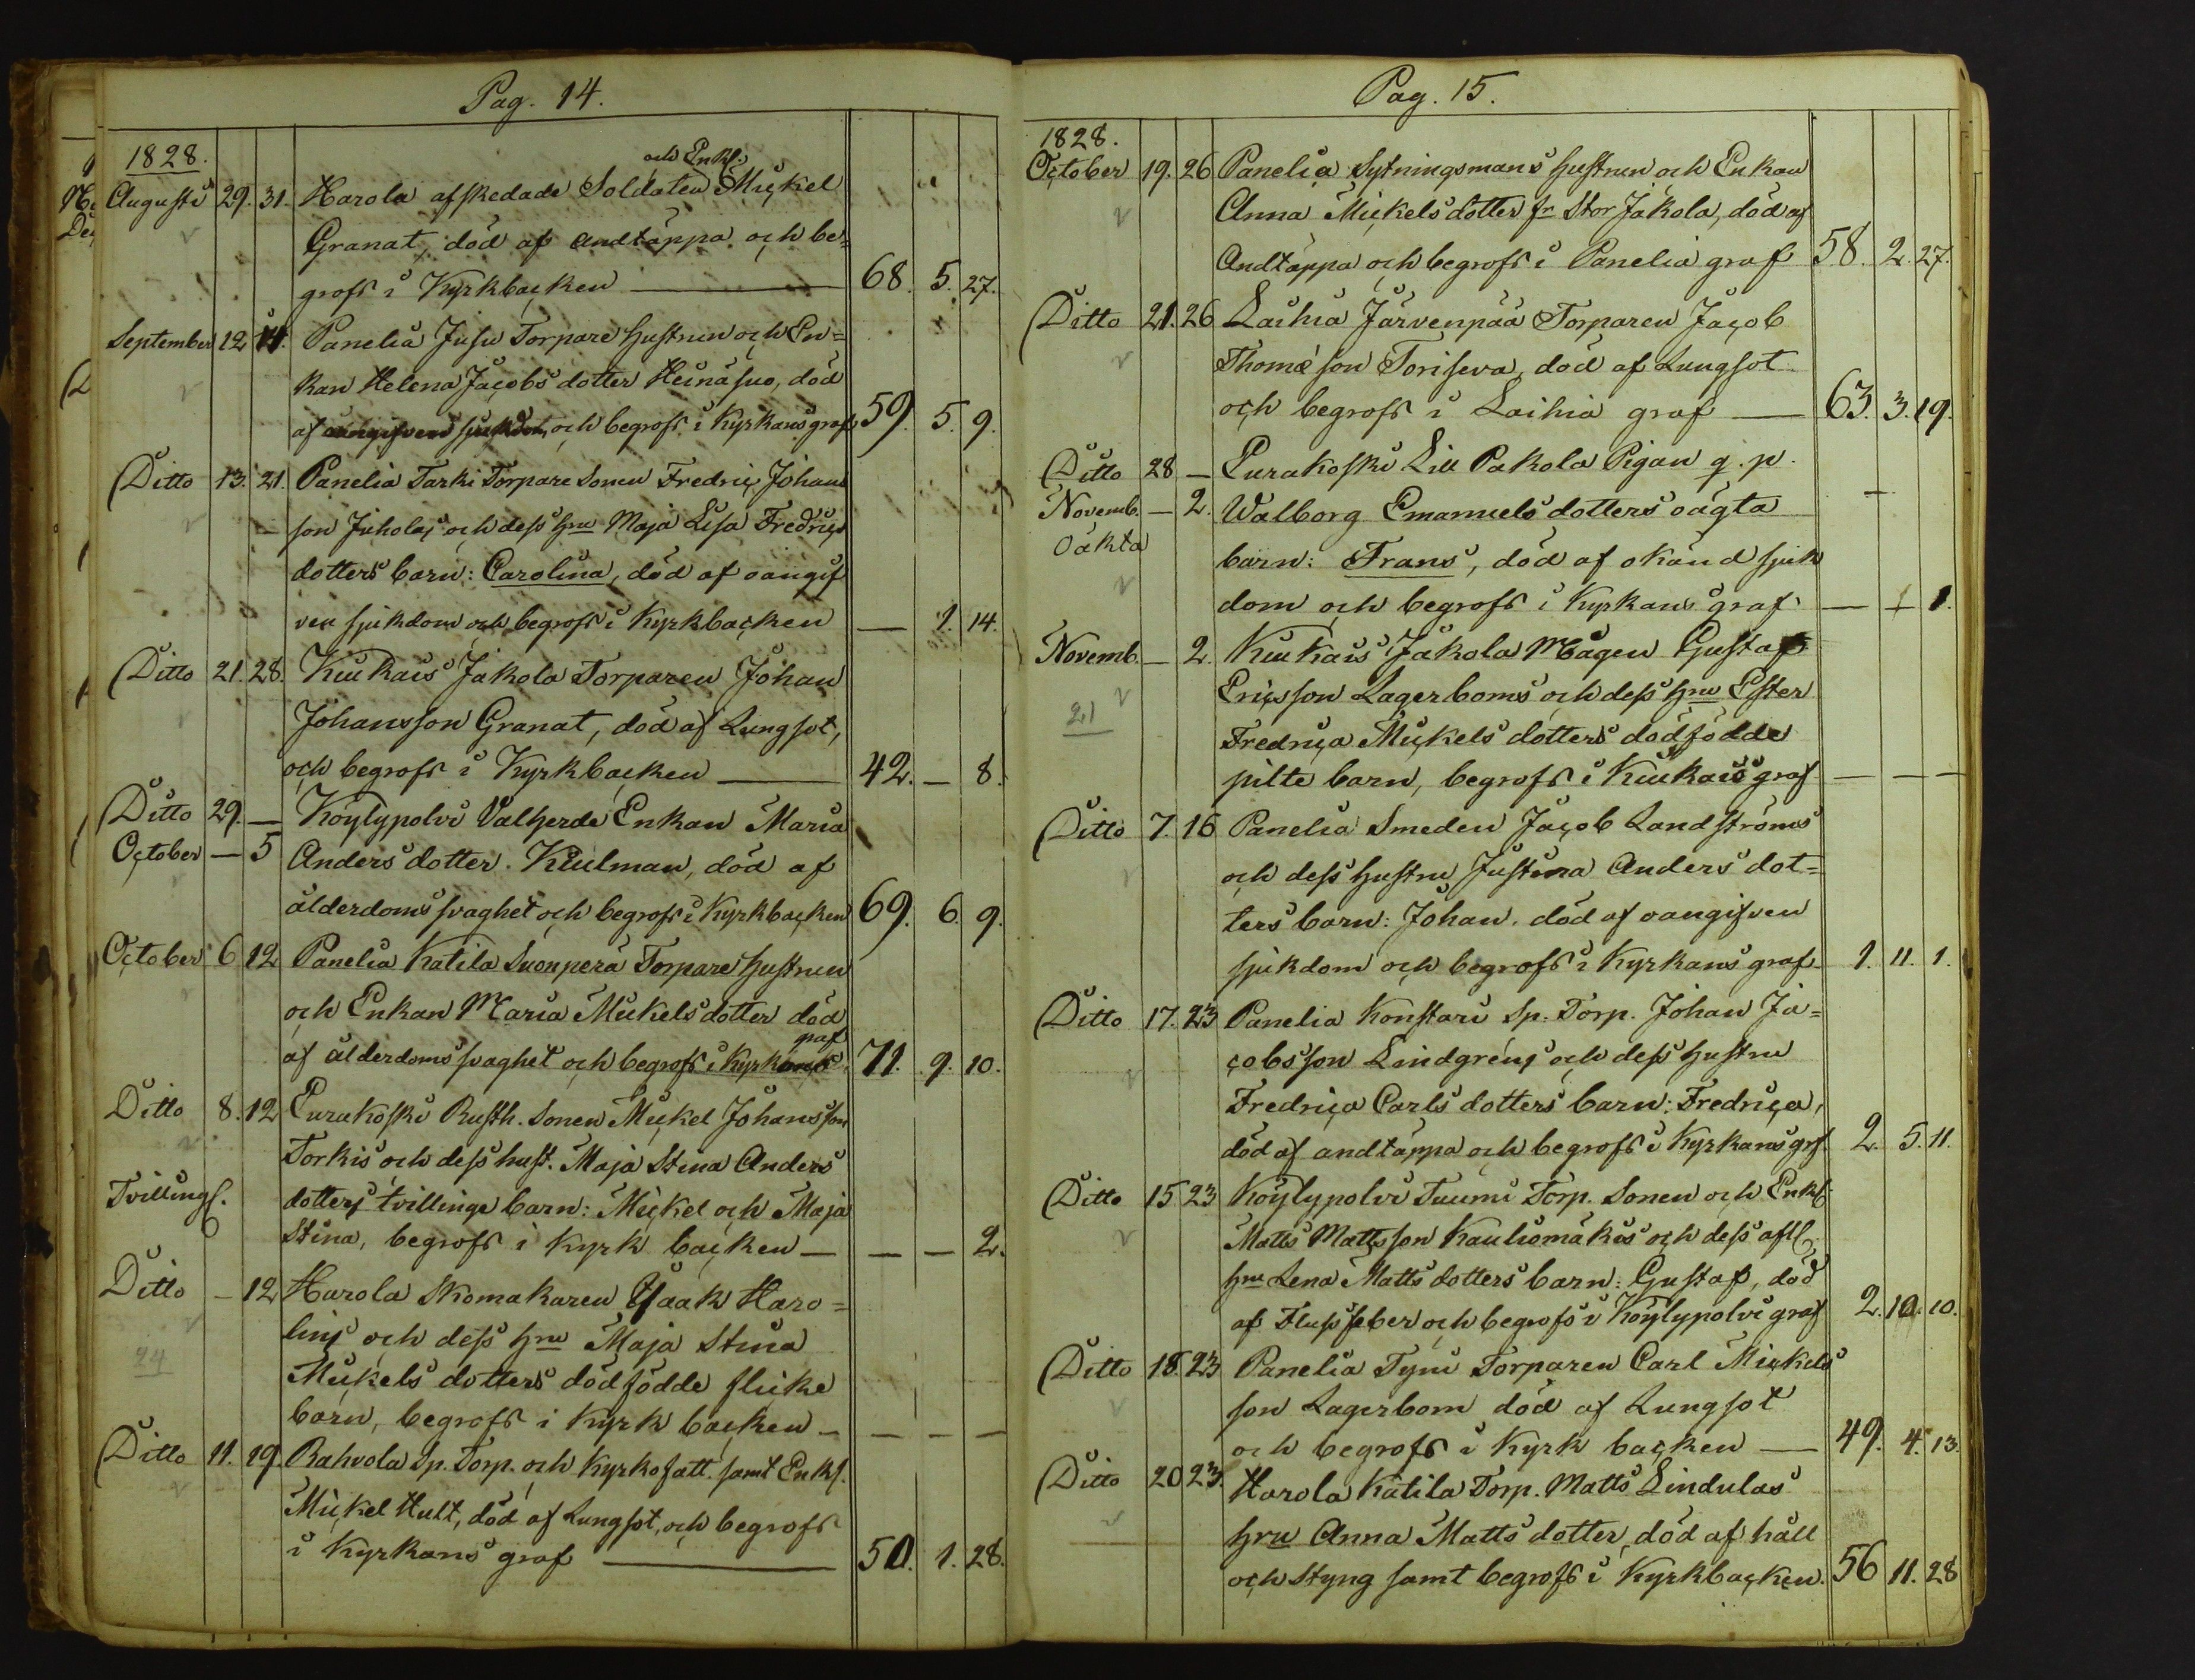 Pag. 14.
1828.
och Enkl.
Augusti 29. 31. Harola afskedade Soldaten Mickel
Granat, död af andtäppa och be=
grofs i Kyrkbacken 68. 5. 27.
September 12 14. Panelia Jusu Torpare hustrun och En=
kan Helena Jacobs dotter Heinäsuo, död
af oangifven sjukdom, och begrofs i Kyrkans graf 59. 5. 9.
Ditto 13. 21. Panelia Tarki Torpare Sonen Fredric Johans
son Juholas och dess hru Maja Lisa Fredrics
dotters barn: Carolina, död af oangif
ven sjukdom och begrofs i Kyrkbacken — 1. 14.
Ditto 21. 28. Kiukais Jakola Torparen Johan
Johansson Granat, död af Lungsot,
och begrofs i Kyrkbacken 42. — 8.
Ditto 29. — Köylypolvi Valherde Enkan Maria
October — 5 Anders dotter Kiulman, död af
ålderdoms svaghet och begrofs i Kyrkbacken 69. 6. 9.
October 6 12 Panelia Katila Suonperä Torpare hustrun
och Enkan Maria Mickels dotter död
graf
af ålderdoms svaghet och begrofs i Kyrkans 71. 9. 10.
Ditto 8. 12 Eurakoski Rusth. Sonen Mickel Johansson
Torkis och dess hust. Maja Stina Anders
Tvilling dotters tvillinge barn: Mickel och Maja
Stina, begrofs i Kyrk backen — — — 2.
Ditto — 12 Harola Skomakaren Isaak Haro=
lins och dess hru Maja Stina
24 Mickels dotters dödfödde flicke
barn, begrofs i Kyrk backen — — — —
Ditto 11. 19. Rahvola Sp. Torp. och Kyrkofatt. samt Enkl.
Mickel Hult, död af Lungsot, och begrofs
i Kyrkans graf 50. 1. 28.
Pag. 15.
1828.
October 19. 26 Panelia Sytningsmans hustrun och Enkan
Anna Mickels dotter fr. Stor Jakola, död af
Andtäppa och begrofs i Panelia graf 58. 2. 27.
Ditto 21. 26 Laihia Järvenpää Torparen Jacob
Thomæ son Toriseva, död af Lungsot
och begrofs i Laihia graf 63. 3. 19.
Ditto 28 — Eurakoski Lill Pakola Pigan q. p.
Novemb. — 2. Walborg Emanuels dotters oägta
Oäkta barn: Frans, död af okänd sjuk
dom och begrofs i Kyrkans graf — — 1.
Novemb. — 2. Kiukais Jakola Mågen Gustaf
Ericsson Lagerboms och dess hru Ester
21 Fredrica Mickels dotters dödfödde
pilte barn, begrofs i Kiukais graf — — —
Ditto 7. 16 Panelia Smeden Jacob Landströms
och dess hustru Justina Anders dot=
ters barn: Johan, död af oangifven
sjukdom och begrofs i Kyrkans graf 1. 11. 1.
Ditto 17. 23 Panelia Konstari Sp. Torp. Johan Ja=
cobsson Lindgrens och dess hustru
Fredrica Carls dotters barn: Fredrica,
död af andtäppa och begrofs i Kyrkans grf. 2. 5. 11.
Ditto 15 23 Köylypolvi Tuumi Torp. Sonen och Enkl.
Matts Mattsson Kaulismäkis och dess afl.
hru Lena Matts dotters barn: Gustaf, död
af Flussfeber och begrofs i Köylypolvi graf 2. 10. 10.
Ditto 18. 23 Panelia Tyni Torparen Carl Mickels
son Lagerbom död af Lungsot
och begrofs i Kyrk backen 49. 4. 13.
Ditto 20 23. Harola Katila Torp. Matts Lindulas
hru Anna Matts dotter, död af håll
och Styng samt begrofs i Kyrkbacken. 56 11. 28